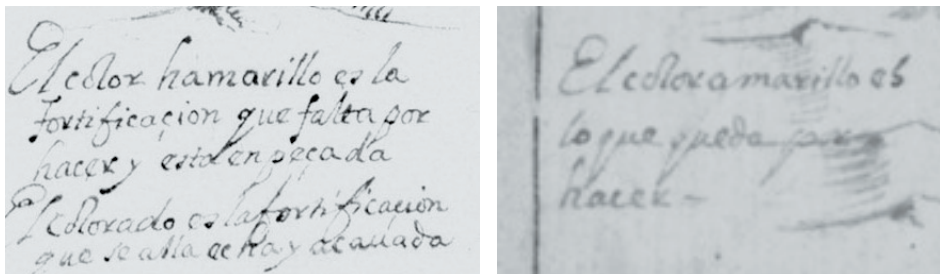 El color hamarillo es la
fortificaçion que falta por
hacer y esta enpeçada
El colorado es la fortificaçion
que se alla echa y acauada
El color amarillo es
lo que queda por
hacer -